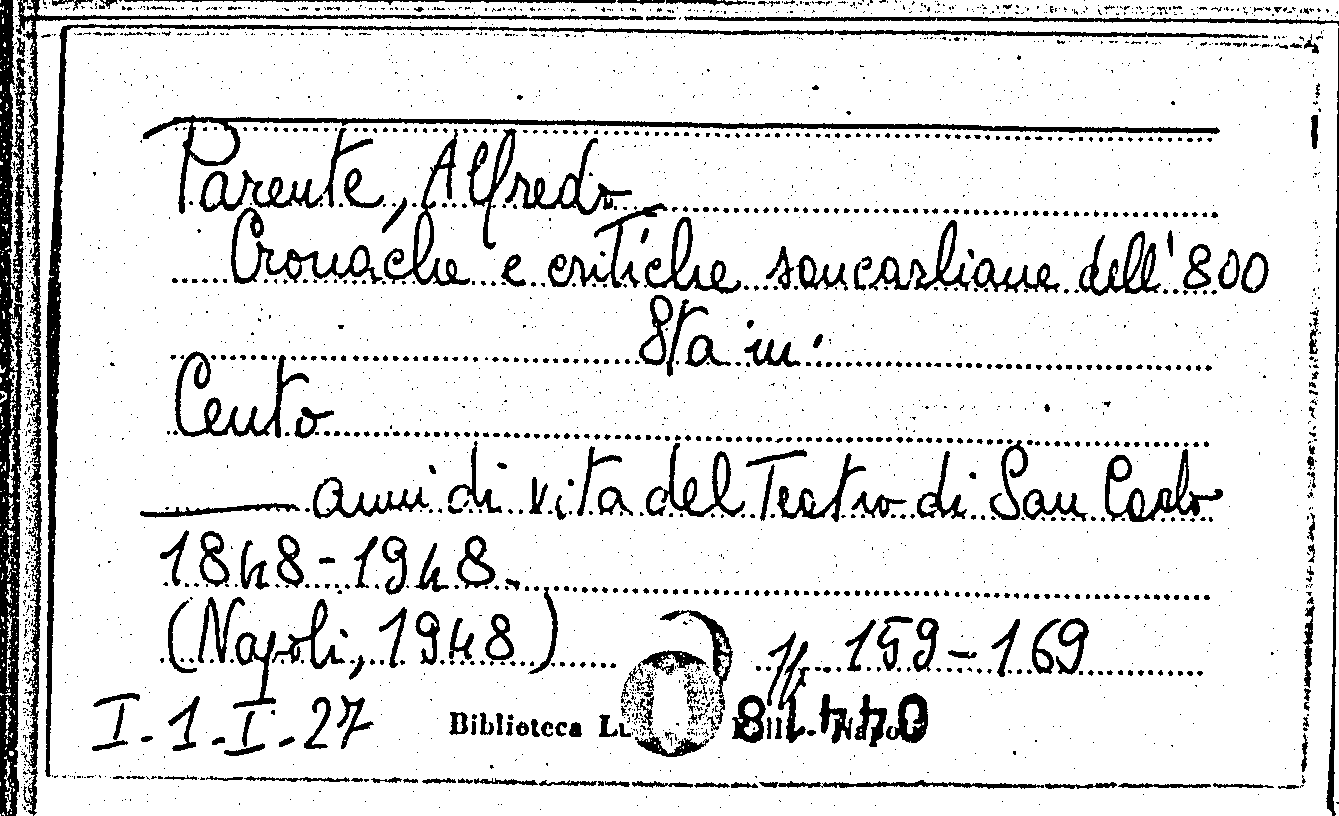 Parente, Alfredo
Cronache e critiche sancarliane dell'800
Sta in:
Cento
anni di vita del Teatro di San Carlo
1848-1948.
(Napoli, 1948) pp. 159-169
I-1-I-27 Biblioteca Napoli 04418